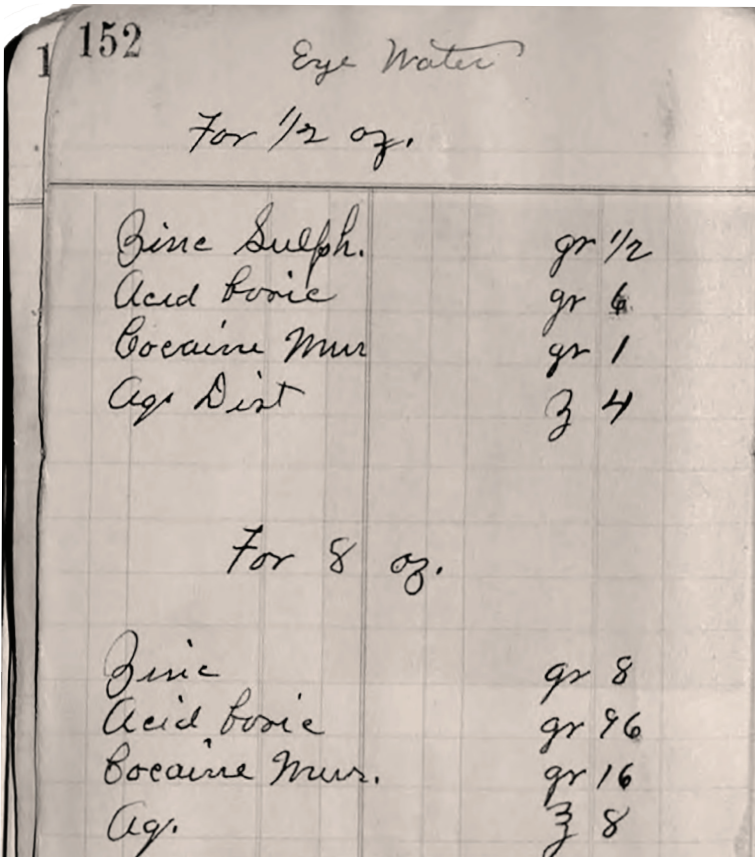 1
152
Eye Water
For 1/2 oz.
Zinc Sulph. gr 1/2
Acid boric gr 6
Cocaine Mur gr 1
Aq. Dist ʒ 4
For 8 oz.
Zinc gr 8
Acid boric gr 96
Cocaine Mur. gr 16
Aq. ℥ 8